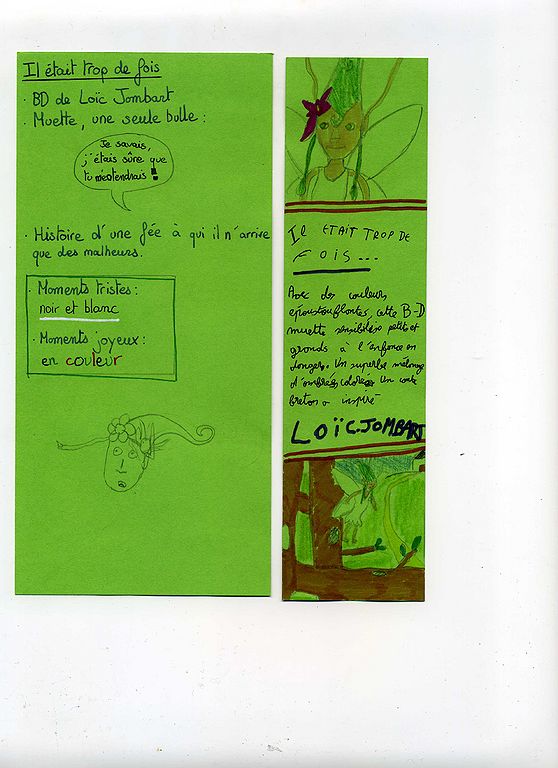 Il était trop de fois
· BD de Loïc Jombart
· Muette, une seule bulle :
Je savais,
j'étais sûre que
tu m'entendrais !!
· Histoire d'une fée à qui il n'arrive
que des malheurs.
· Moments tristes :
noir et blanc
· Moments joyeux :
en couleur
IL ETAIT TROP DE
FOIS...
Avec des couleurs
époustouflantes, cette B-D
muette sensibilise petits et
grands à l'enfance en
danger. Un superbe mélange
d'ombres colorées Un conte
breton a inspiré
LOÏC.JOMBART